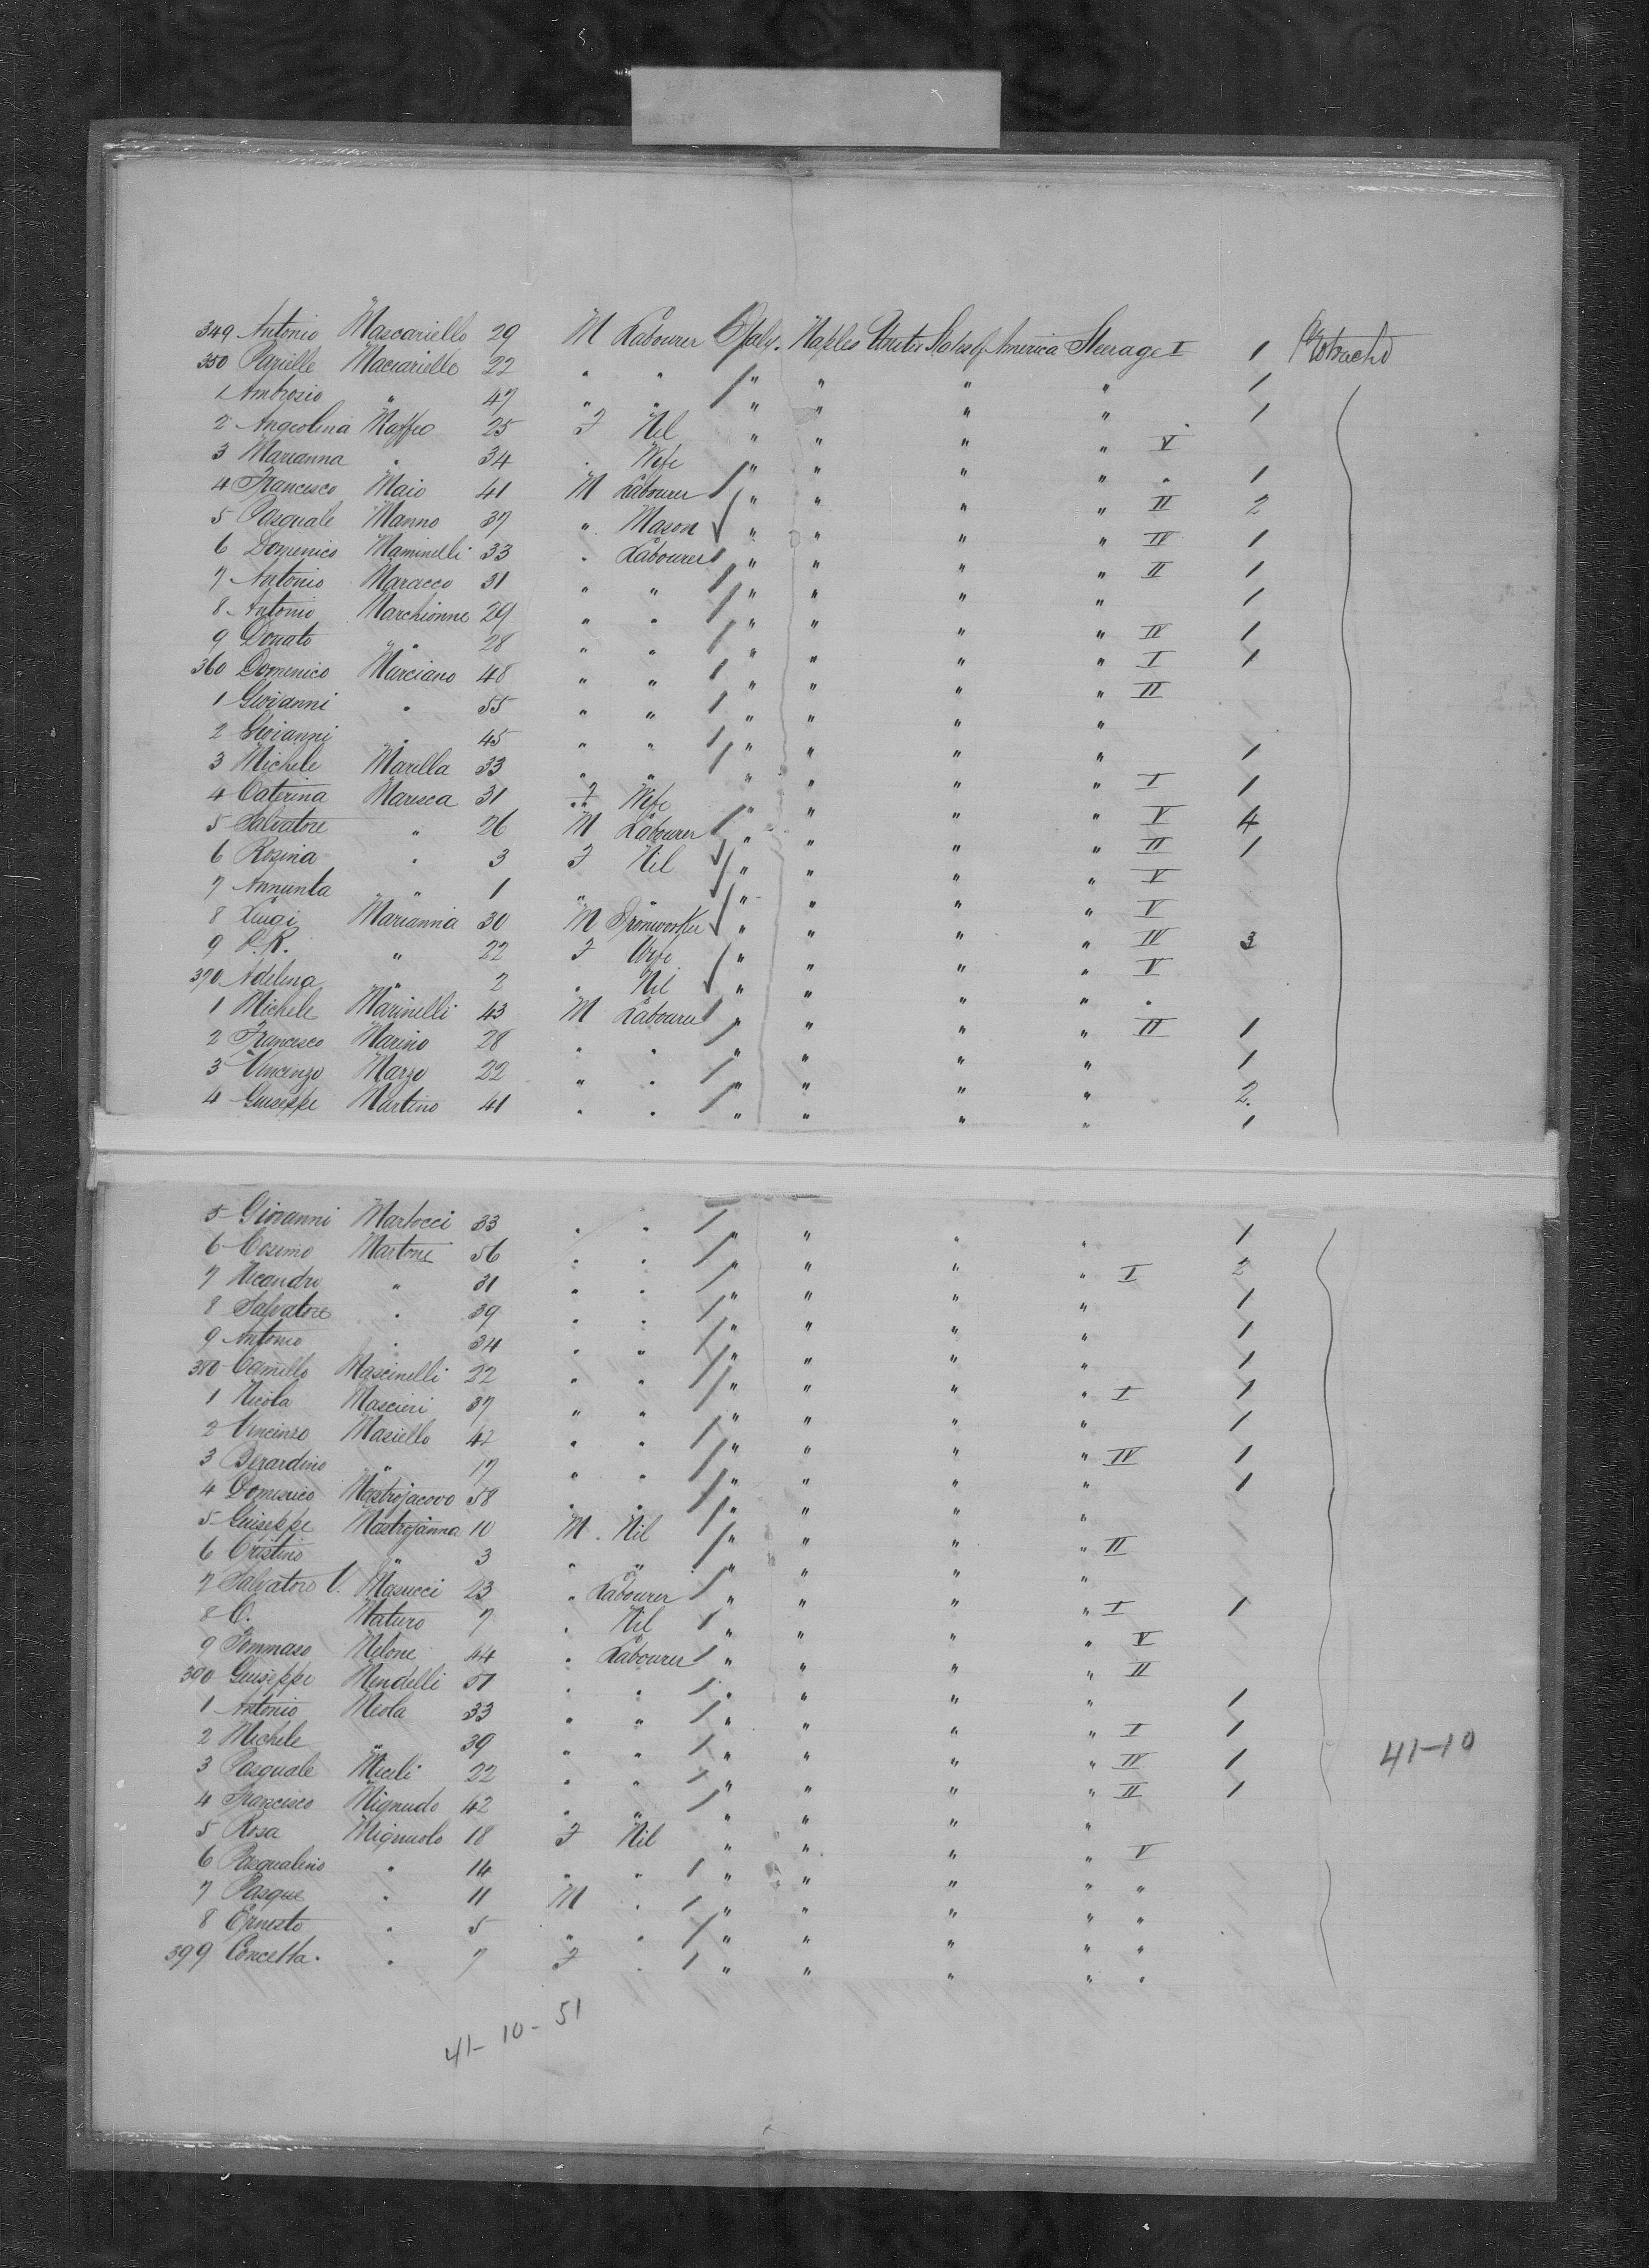 349 Antonio Mascariello 29 M Labourer Italy. Naples United States of America Steerage I 1 Protracted
350 Macciariello 22 " " " " " " 1
1 Ambrosio " 47 " " " " " " 1
2 Angiolina Maffeo 25 F Nil " " " " V
3 Marianna " 34 " Wife " " " " " 1
4 Francesco Maio 41 M Labourer " " " " II 2
5 Pasquale Manno 37 " Mason " " " " IV 1
6 Domenico Maminelli 33 " Labourer " " " " II 1
7 Antonio Maracco 31 " " " " " " 1
8 Antonio Marchionne 29 " " " " " " IV 1
9 Donato " 28 " " " " " " I 1
360 Domenico Marciano 48 " " " " " " II
1 Giovanni " 55 " " " " " "
2 Giovanni " 45 " " " " " " 1
3 Michele Marella 33 " " " " " " I 1
4 Caterina Maresca 31 F Wife " " " " V 4
5 Salvatore " 26 M Labourer " " " " II 1
6 Rosina " 3 F Nil " " " " V
7 Annunta " 1 " " " " " " V
8 Luigi Marianna 30 M Ironworker " " " " IV 3
9 P.R. " 22 F Wife " " " " V
370 Adelina " 2 " Nil " " " " "
1 Michele Marinelli 43 M Labourer " " " " II 1
2 Francesco Marino 28 " " " " " " 1
3 Vincenzo Marzo 22 " " " " " " 2.
4 Giuseppe Martino 41 " " " " " " 1
5 Giovanni Martocci 33 " " " " " " 1
6 Cosimo Martone 56 " " " " " " I 2
7 Nicandro " 31 " " " " " " 1
8 Salvatore " 39 " " " " " " 1
9 Antonio " 34 " " " " " " 1
380 Camillo Mascinelli 22 " " " " " " I 1
1 Nicola Mascieri 37 " " " " " " 1
2 Vincinzo Masiello 42 " " " " " " IV 1
3 Berardino " 17 " " " " " " 1
4 Domenico Mastrojacovo 58 " " " " " "
5 Giuseppe Mastrojanna 10 M. Nil " " " " II
6 Cristino " 3 " " " " " "
7 Salvatore V. Masucci 23 " Labourer " " " " I 1
8 C. Maturo 7 " Nil " " " " V
9 Tommaso Melone 44 " Labourer " " " " II
390 Giuseppe Mendelli 51 " " " " " " 1
1 Antonio Meola 33 " " " " " " I 1
2 Michele " 39 " " " " " " IV 1
3 Pasquale Miceli 22 " " " " " " II 1
4 Francesco 42 " " " " " "
5 Rosa Mignuolo 18 F Nil " " " " V
6 Pasqualino " 14 " " " " " " "
7 Pasque " 11 M " " " " " "
8 Ernesto " 5 " " " " " " "
399 Concetta. " 7 F " " " " " "
41-10
41-10-51